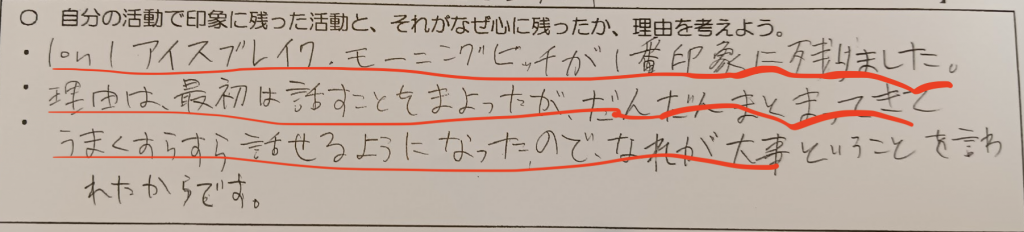 ○ 自分の活動で印象に残った活動と、それがなぜ心に残ったか、理由を考えよう。
・1on1アイスブレイク.モーニングピッチが1番印象に残りました。
・理由は、最初は話すことをまよったが、だんだんまとまってきて
・うまくすらすら話せるようになったので、なれが大事ということを言わ
れたからです。